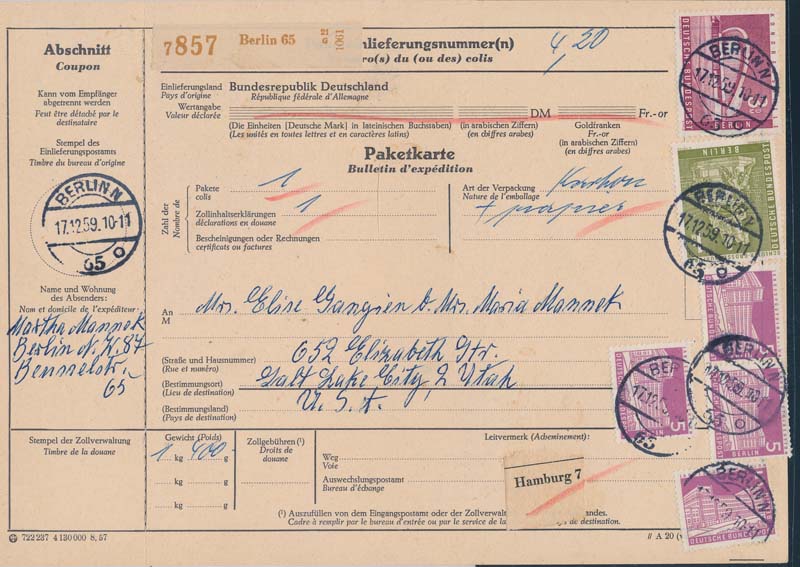 Abschnitt
Coupon
Kann vom Empfänger
abgetrennt werden
Peut être détaché par le
destinataire
Stempel des
Einlieferungspostamts
Timbre du bureau d'origine
BERLIN N
17.12.59.10-11
65 o
Name und Wohnung
des Absenders:
Nom et domicile de l'expéditeur:
Martha Mannek
Berlin N.W. 87
65
Stempel der Zollverwaltung
Timbre de la douane
722 237 4 130 000 8, 57
7857 Berlin 65
nlieferungsnummer(n)
ro(s) du (ou des) colis
4,20
Einlieferungsland
Pays d'origine
Bundesrepublik Deutschland
République fédérale d'Allemagne
Wertangabe
Valeur déclarée
DM
Fr.-or
(Die Einheiten [Deutsche Mark] in lateinischen Buchstaben)
(Les unités en toutes lettres et en caractères latins)
(in arabischen Ziffern)
(en chiffres arabes)
Goldfranken
Fr.-or
(in arabischen Ziffern)
(en chiffres arabes)
Paketkarte
Bulletin d'expédition
Zahl der
Nombre de
Pakete
colis
1
Zollinhaltserklärungen
déclarations en douane
1
Bescheinigungen oder Rechnungen
certificats ou factures
Art der Verpackung
Nature de l'emballage
Karton
+ papier
An
M
Mrs. Elise Gangien b. Mrs. Maria Mannek
(Straße und Hausnummer)
(Rue et numéro)
652 Elizabeth Str.
(Bestimmungsort)
(Lieu de destination)
Salt Lake City, 2 Utah
(Bestimmungsland)
(Pays de destination)
U.S.A.
Gewicht (Poids)
1 kg 400 g
kg g
kg g
Zollgebühren (¹)
Droits de
douane
Leitvermerk (Acheminement):
Weg
Voie
Auswechslungspostamt
Bureau d'échange
Hamburg 7
(¹) Auszufüllen von dem Eingangspostamt oder der Zollverwaltung
landes.
Cadre à remplir par le bureau d'entrée ou par le service de la
de destination.
// A 20
DEUTSCHE BUNDESPOST
BERLIN
BERLIN N
17.12.59.10-11
65 o
DEUTSCHE BUNDESPOST
BERLIN
17.12.59.10-11
65 o
DEUTSCHE BUNDESPOST
5
BERLIN
5
BERLIN N
17.12.59.10
65 o
BERLIN
5
65
DEUTSCHE BUNDESPOST
BERLIN N